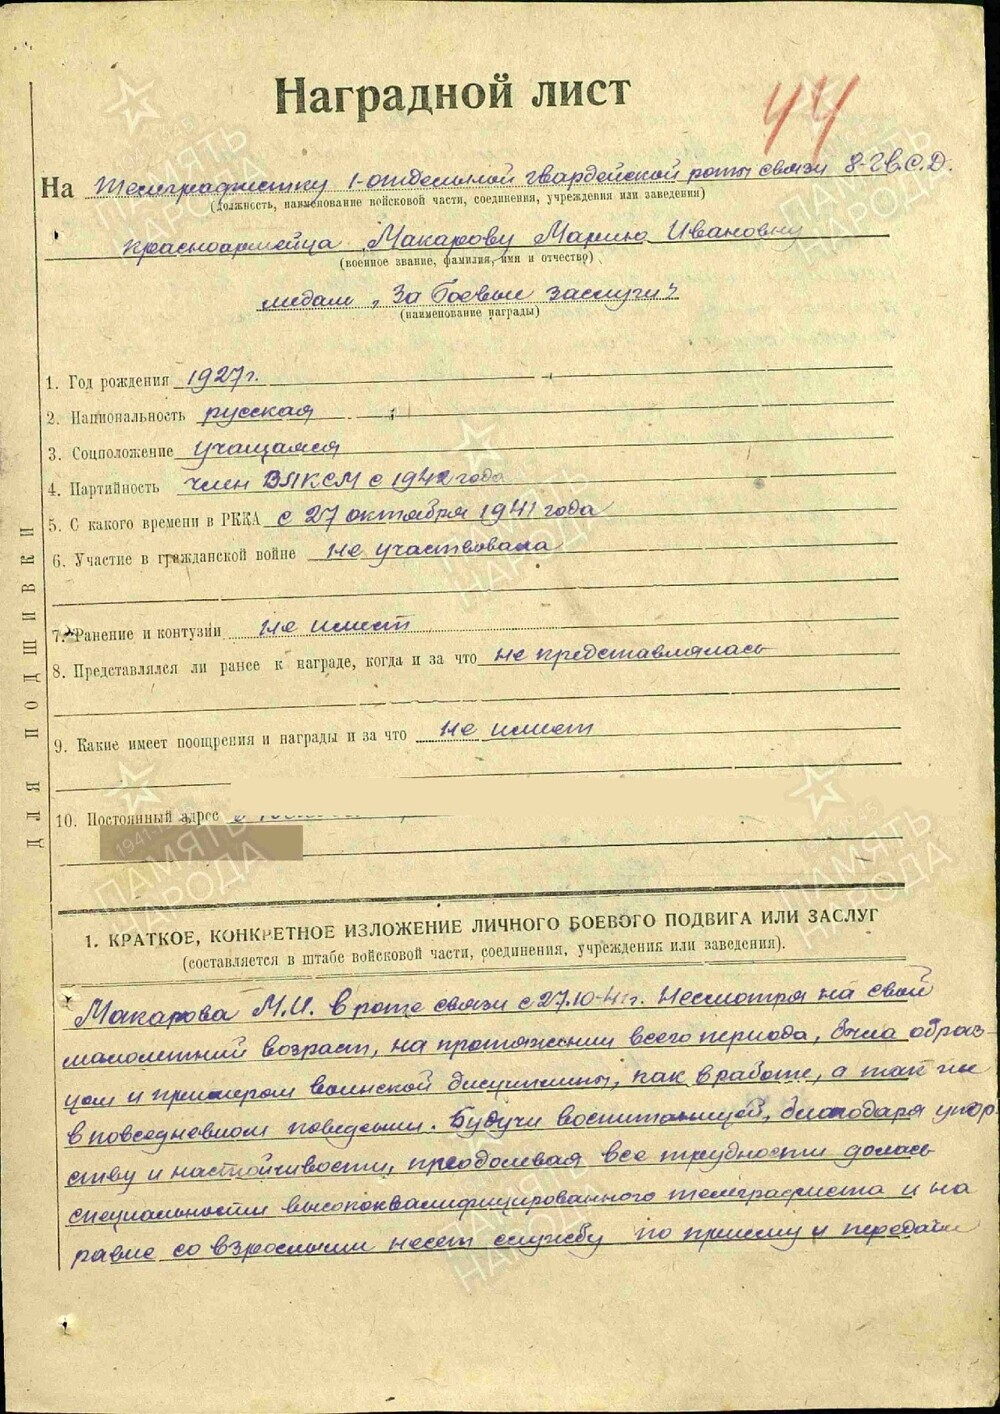 Наградной лист
44
На телеграфистку 1-отдельной гвардейской роты связи 8-Гв.С.Д.
(должность, наименование войсковой части, соединения, учреждения или заведения)
красноармейца Макарову Марию Ивановну
(военное звание, фамилия, имя и отчество)
медали „За боевые заслуги"
(наименование награды)
1. Год рождения 1927г.
2. Национальность русская
3. Соцположение учащаяся
4. Партийность член ВЛКСМ с 1942 года
5. С какого времени в РККА с 27 октября 1941 года
6. Участие в гражданской войне не участвовала
7. Ранение и контузии не имеет
8. Представлялся ли ранее к награде, когда и за что не представлялась
9. Какие имеет поощрения и награды и за что не имеет
10. Постоянный адрес
ДЛЯ ПОДШИВКИ
1. КРАТКОЕ, КОНКРЕТНОЕ ИЗЛОЖЕНИЕ ЛИЧНОГО БОЕВОГО ПОДВИГА ИЛИ ЗАСЛУГ
(составляется в штабе войсковой части, соединения, учреждения или заведения).
Макарова М.И. в роте связи с 27.10-41г. Несмотря на свой
малолетний возраст, на протяжении всего периода, была образ-
цом и примером воинской дисциплины, как в работе, а так ни
в повседневном поведении. Будучи воспитанницей, благодаря упор
ству и настойчивости, преодолевая все трудности
специальности высококвалифицированного телеграфиста и на
равне со взрослыми несет службу по приему и передачи
ПАМЯТЬ НАРОДА
1941-1945